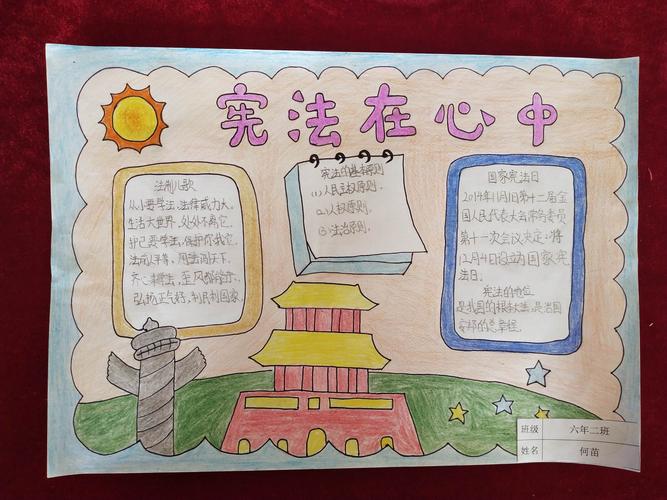 宪法在心中
法制儿歌
从小要学法,法律威力大。
生活大世界,处处不离它。
护己要学法,保护你我它。
法面前平等,用法闯天下。
齐心来学法,
弘扬正气好,利民利国家。
宪法的基本原则
(1)人民主权原则。
(2)人权原则。
(3)法治原则。
国家宪法日
2014年11月1日第十二届全
国人民代表大会常务委员
第十一次会议决定:将
12月4日设立为国家宪
法日。
宪法的地位
是我国的根本大法,是治国
安邦的总章程。
班级 六年二班
姓名 何苗